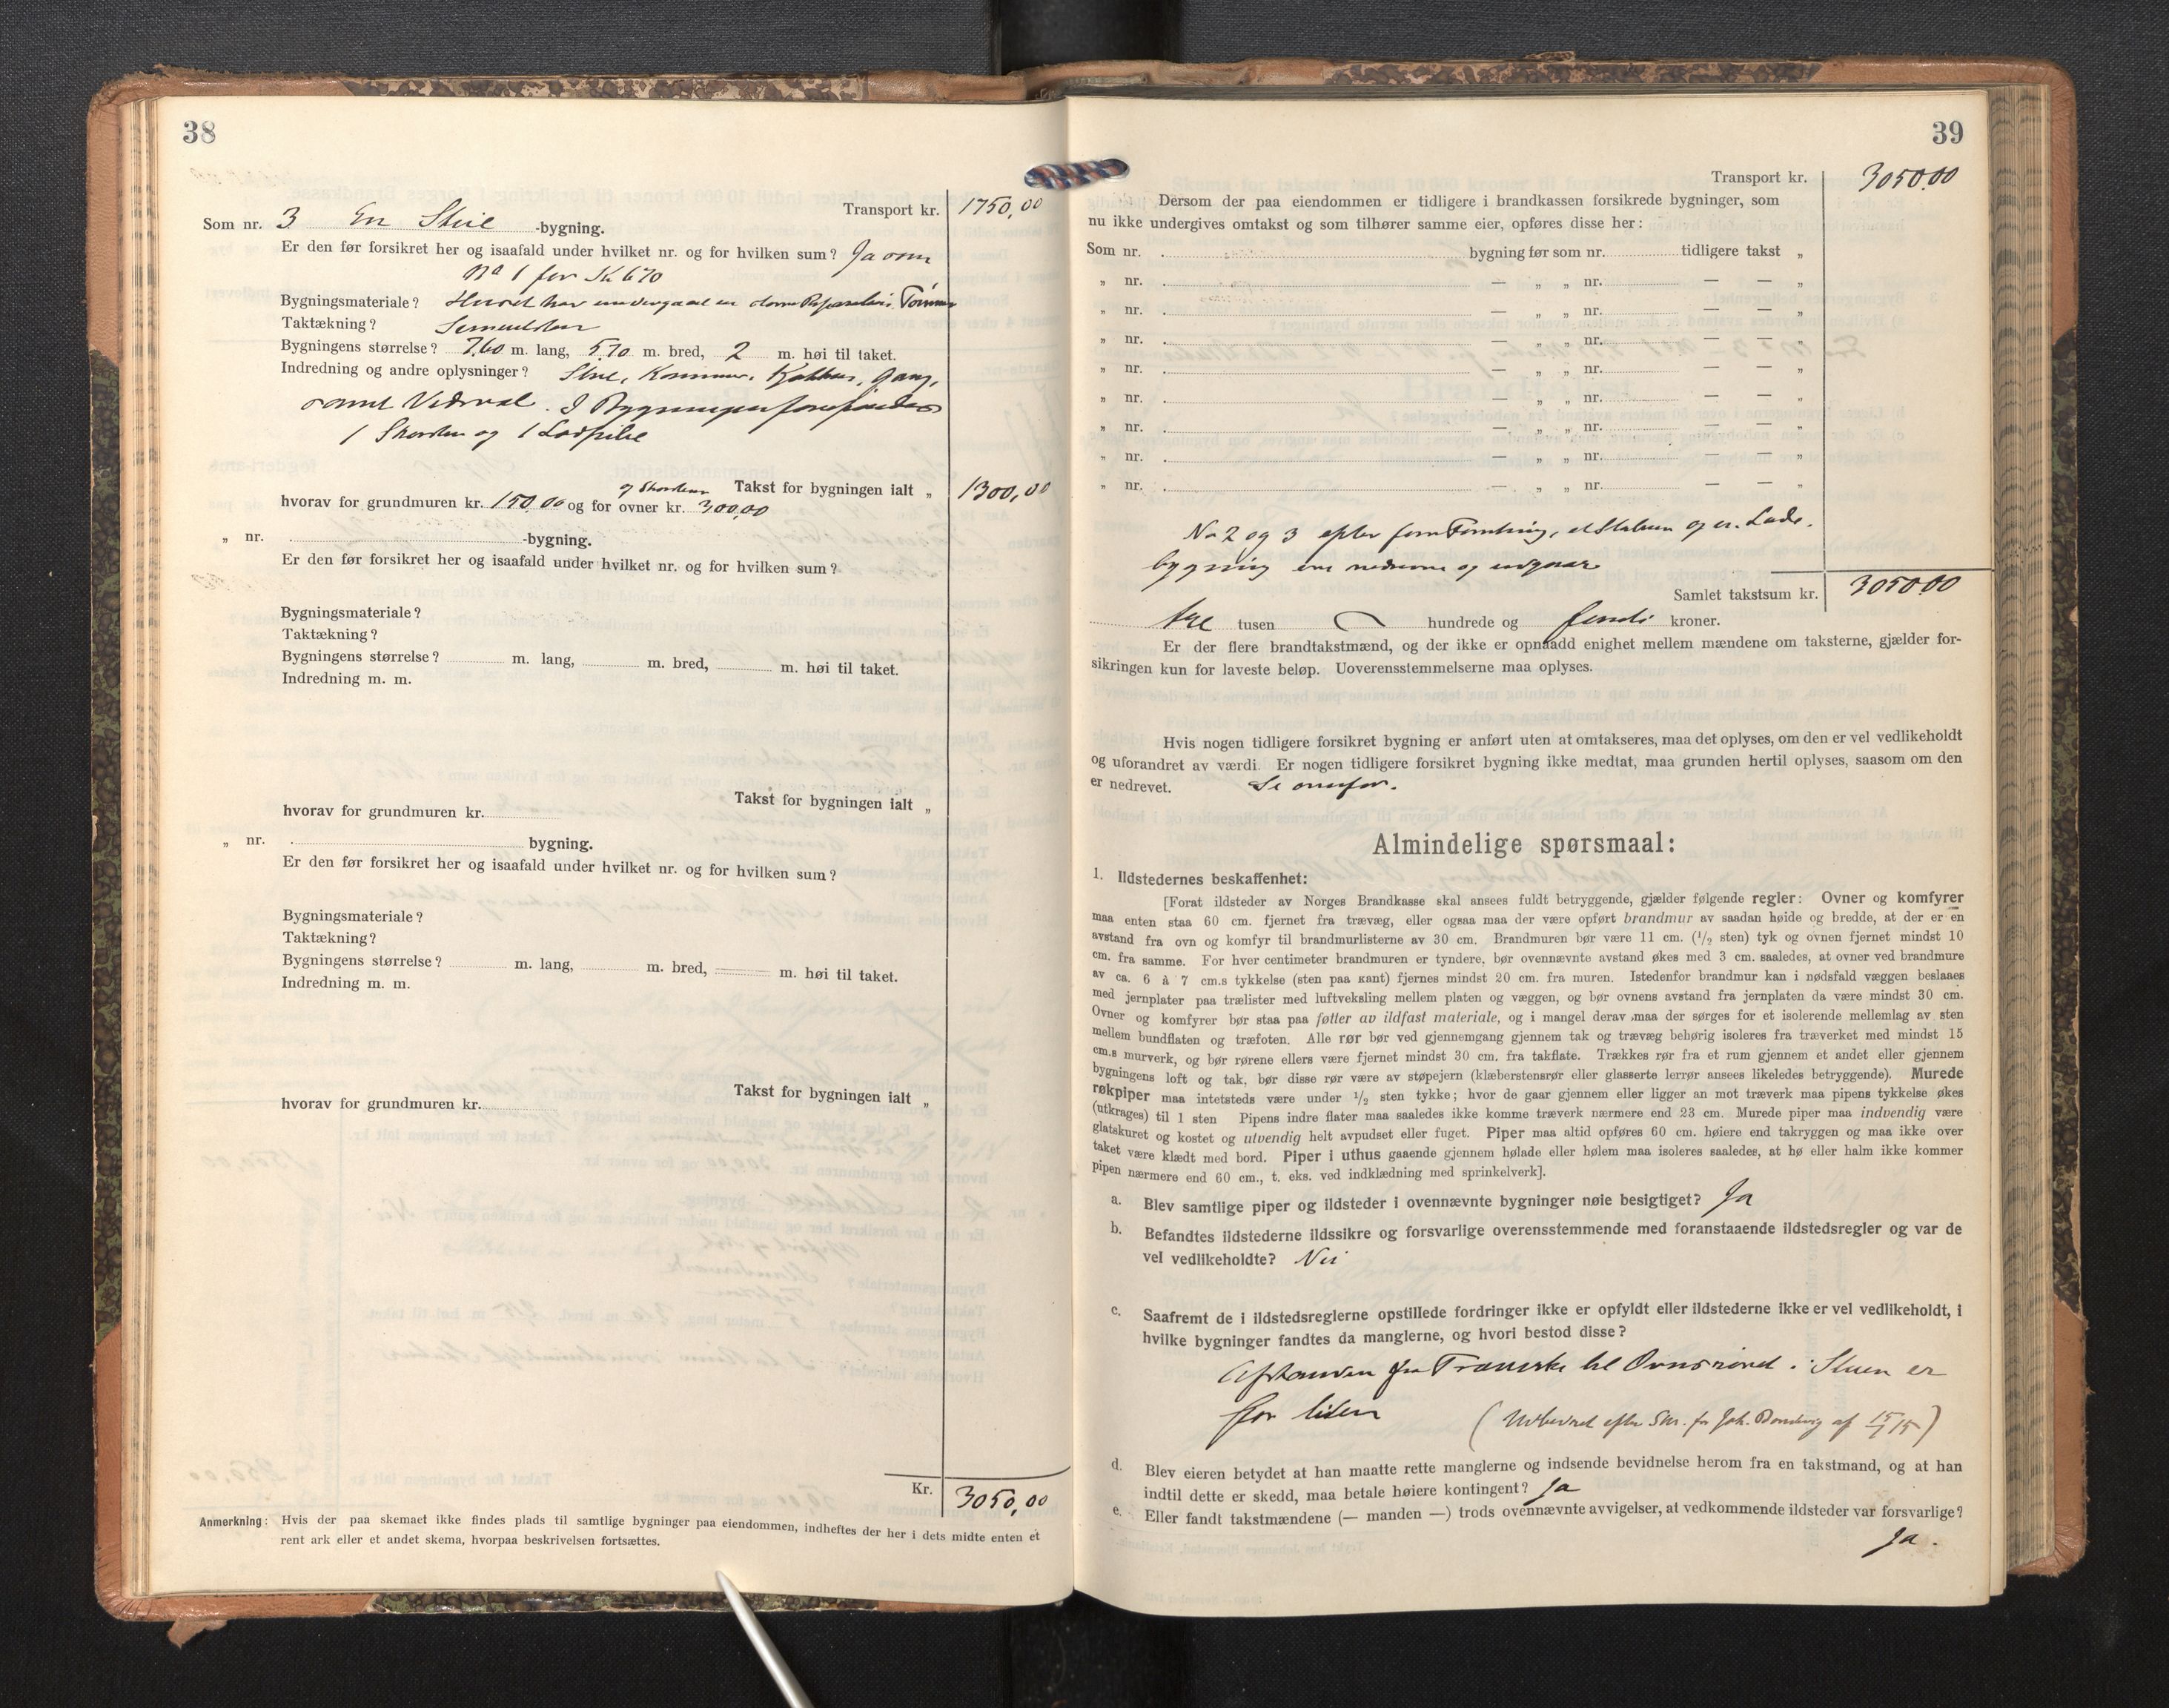 38
Transport kr. 1750,00
Som nr. 3 En Stue -bygning.
Er den før forsikret her og isaafald under hvilket nr. og for hvilken sum? Ja som
No 1 for Kr 670
Bygningsmateriale? Huset har undergaaet en Tømmer
Taktækning?
Bygningens størrelse? 7.60 m. lang, 5.70 m. bred, 2 m. høi til taket.
Indredning og andre oplysninger? Stue, Kammer, Kjøkken, Gang,
samt Vedsval. I Bygningen forefindes
1 Skorsten og 1 Ladpibe
Takst for bygningen ialt „ 1300,00
og Skorsten
hvorav for grundmuren kr. 150.00 og for ovner kr. 300.00
„ nr. -bygning.
Er den før forsikret her og isaafald under hvilket nr. og for hvilken sum?
Bygningsmateriale?
Taktækning?
Bygningens størrelse? m. lang, m. bred, m. høi til taket.
Indredning m. m.
Takst for bygningen ialt „
hvorav for grundmuren kr.
„ nr. bygning.
Er den før forsikret her og isaafald under hvilket nr. og for hvilken sum?
Bygningsmateriale?
Taktækning?
Bygningens størrelse? m. lang, m. bred, m. høi til taket.
Indredning m. m.
Takst for bygningen ialt „
hvorav for grundmuren kr.
Kr. 3050,00
Anmerkning: Hvis der paa skemaet ikke findes plads til samtlige bygninger paa eiendommen, indheftes der her i dets midte enten et
rent ark eller et andet skema, hvorpaa beskrivelsen fortsættes.
39
Transport kr. 3050.00
Dersom der paa eiendommen er tidligere i brandkassen forsikrede bygninger, som
nu ikke undergives omtakst og som tilhører samme eier, opføres disse her:
Som nr. bygning før som nr. tidligere takst „
„ nr. — „ „ nr. — — „
„ nr. — „ „ nr. — — „
„ nr. — „ „ nr. — — „
„ nr. — „ „ nr. — — „
„ nr. — „ „ nr. — — „
„ nr. — „ „ nr. — — „
„ nr. — „ „ nr. — — „
„ nr. — „ „ nr. — — „
No 2 og 3 efter forr Forretning, et Stabur og en Lade-
bygning ere nedrevne og udgaar
Samlet takstsum kr. 3050.00
tre tusen hundrede og femti kroner.
Er der flere brandtakstmænd, og der ikke er opnaadd enighet mellem mændene om taksterne, gjælder for-
sikringen kun for laveste beløp. Uoverensstemmelserne maa oplyses.
Hvis nogen tidligere forsikret bygning er anført uten at omtakseres, maa det oplyses, om den er vel vedlikeholdt
og uforandret av værdi. Er nogen tidligere forsikret bygning ikke medtat, maa grunden hertil oplyses, saasom om den
er nedrevet. Se ovenfor.
Almindelige spørsmaal:
1. Ildstedernes beskaffenhet:
[Forat ildsteder av Norges Brandkasse skal ansees fuldt betryggende, gjælder følgende regler: Ovner og komfyrer
maa enten staa 60 cm. fjernet fra trævæg, eller ogsaa maa der være opført brandmur av saadan høide og bredde, at der er en
avstand fra ovn og komfyr til brandmurlisterne av 30 cm. Brandmuren bør være 11 cm. (1/2 sten) tyk og ovnen fjernet mindst 10
cm. fra samme. For hver centimeter brandmuren er tyndere, bør ovennævnte avstand økes med 3 cm. saaledes, at ovner ved brandmure
av ca. 6 à 7 cm.s tykkelse (sten paa kant) fjernes mindst 20 cm. fra muren. Istedenfor brandmur kan i nødsfald væggen beslaaes
med jernplater paa trælister med luftveksling mellem platen og væggen, og bør ovnens avstand fra jernplaten da være mindst 30 cm.
Ovner og komfyrer bør staa paa føtter av ildfast materiale, og i mangel derav maa der sørges for et isolerende mellemlag av sten
mellem bundflaten og træfoten. Alle rør bør ved gjennemgang gjennem tak og trævæg behørig isoleres fra træverket med mindst 15
cm.s murverk, og bør rørene ellers være fjernet mindst 30 cm. fra takflate. Trækkes rør fra et rum gjennem et andet eller gjennem
bygningens loft og tak, bør disse rør være av støpejern (klæberstensrør eller glasserte lerrør ansees likeledes betryggende). Murede
røkpiper maa intetsteds være under 1/2 sten tykke; hvor de gaar gjennem eller ligger an mot træverk maa pipens tykkelse økes
(utkrages) til 1 sten Pipens indre flater maa saaledes ikke komme træverk nærmere end 23 cm. Murede piper maa indvendig være
glatskuret og kostet og utvendig helt avpudset eller fuget. Piper maa altid opføres 60 cm. høiere end takryggen og maa ikke over
taket være klædt med bord. Piper i uthus gaaende gjennem hølade eller hølem maa isoleres saaledes, at hø eller halm ikke kommer
pipen nærmere end 60 cm., t. eks. ved indklædning med sprinkelverk].
a. Blev samtlige piper og ildsteder i ovennævnte bygninger nøie besigtiget? Ja
b. Befandtes ildstederne ildssikre og forsvarlige overensstemmende med foranstaaende ildstedsregler og var de
vel vedlikeholdte? Nei
c. Saafremt de i ildstedsreglerne opstillede fordringer ikke er opfyldt eller ildstederne ikke er vel vedlikeholdt, i
hvilke bygninger fandtes da manglerne, og hvori bestod disse?
Afstanden fra Træverke til Ovnsrøret i Stuen er
for liden (Utbedret efter Skr. fr Joh. af 15/7 15)
d. Blev eieren betydet at han maatte rette manglerne og indsende bevidnelse herom fra en takstmand, og at han
indtil dette er skedd, maa betale høiere kontingent? Ja
e. Eller fandt takstmændene (— manden —) trods ovennævnte avvigelser, at vedkommende ildsteder var forsvarlige?
Ja.